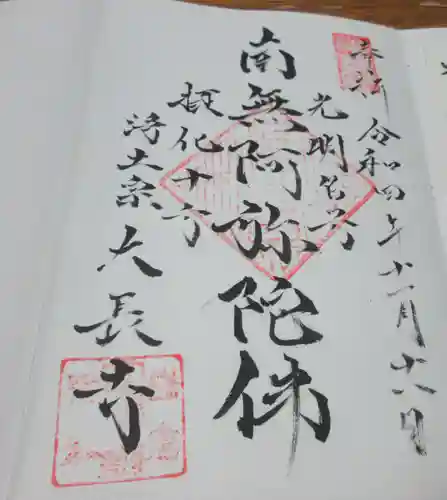 奉拝 令和四年十一月十六日
光明名号
南無阿弥陀佛
摂化十方
浄土宗
大長寺